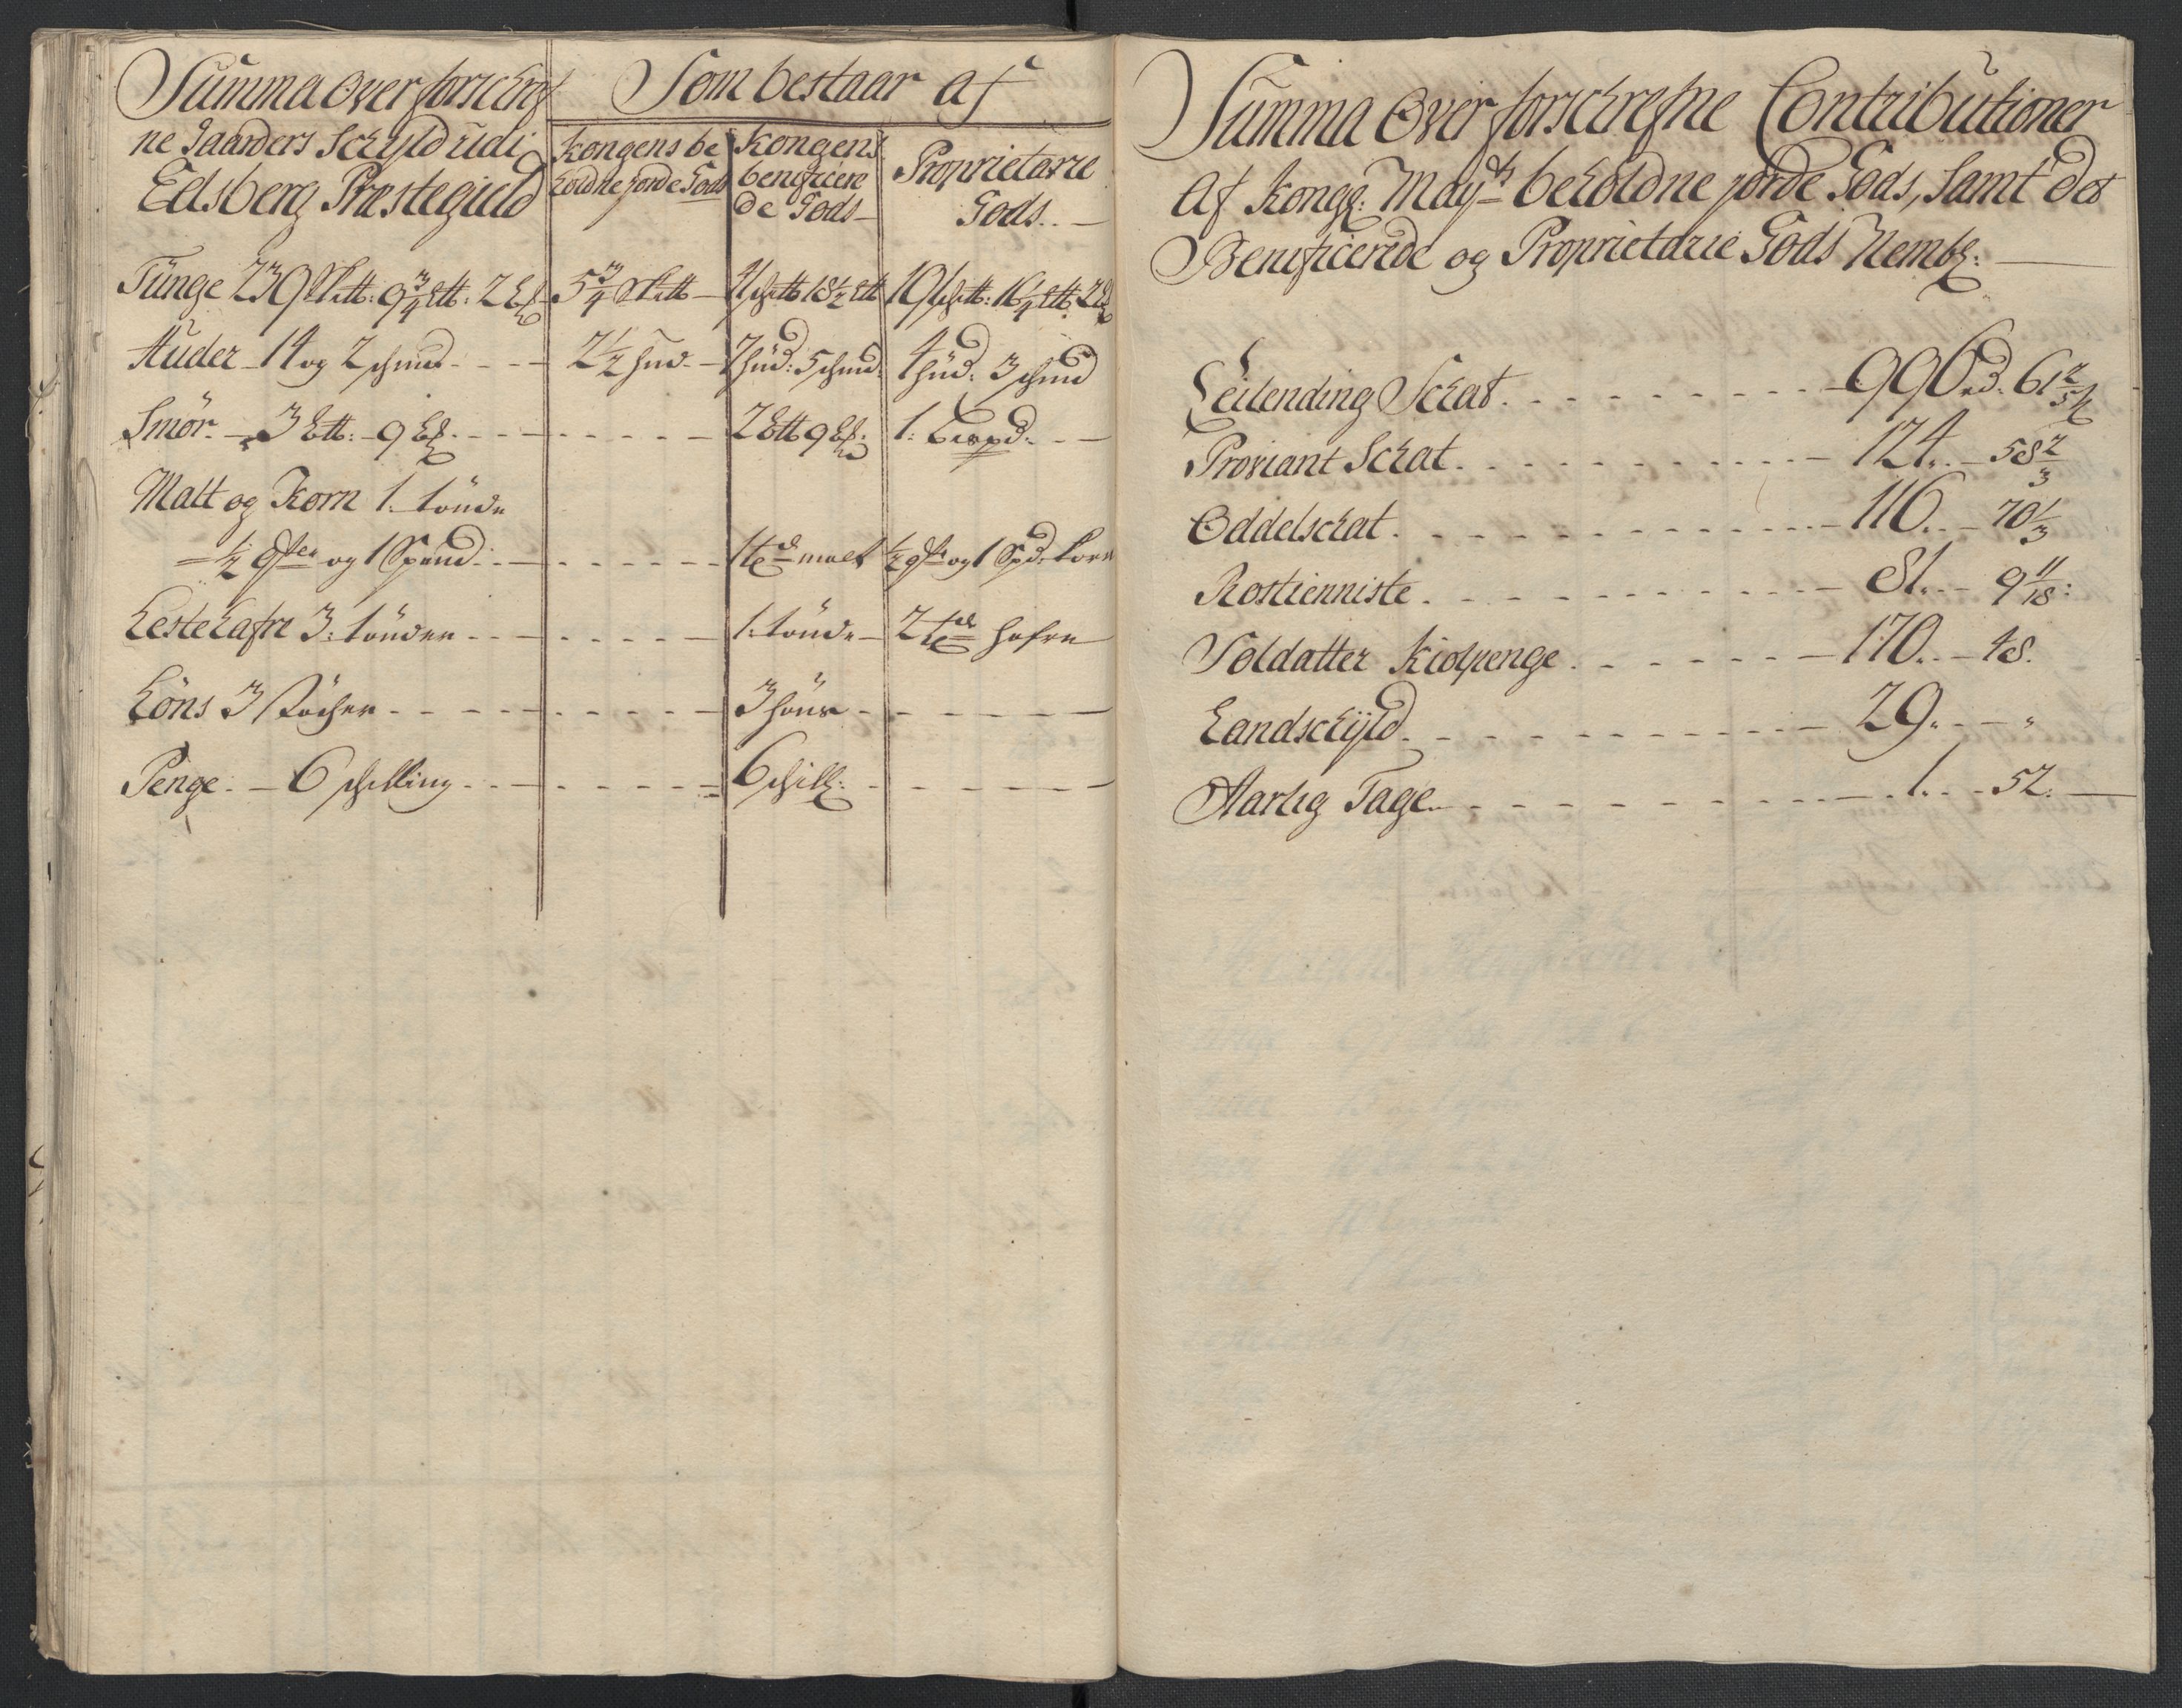 Summa Over forschref
ne Gaarders Schyld udi
Edsberg Prestegield
Som bestaar af
Kongens be
holdne Jorde Gods
Kongens
beneficere
de Gods
Proprietarie
Gods
Tunge 239 Sk℔: 9¾ L℔: 2
5¾ Sk℔
18½ L℔
2
Huder 14 og 2 schind
2½ hud
7 hud: 5 schind:
4 hud: 3 schind
Smör 3 L℔: 9
2 L℔ 9
1: Lispd:
Malt og Korn 1 tönde
½ qter og 1 Spand
1 tde malt
½ qtr og 1 Spd: korn
Hestehafre 3: tönder
1: tönde
2 tdr hafre
Höns 3 stöcher
3 höns
Penge 6 schilling
6 schill:
Summa Over forschrefne Contributioner
Af Kongl: Mayts beholdne jorde Gods, samt det
Beneficerede og Proprietarie Gods Nembl:
Leilending Schat 996 d. 61 2/5 ß
Proviant Schat 124 58 2/3
Oddelschat 116 70 1/3
Rostienniste 81 9 11/18:
Soldatter Kiolpenge 170 48.
Landschyld 29 "
Aarlig Tage 1 52.